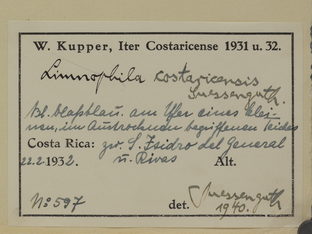 W. Kupper, Iter Costaricense 1931 u. 32.
Limnophila costaricensis
Suessenguth.
Bl. blassblau. am Ufer eines klei-
nen, im Austrocknen begriffenen Teiches
Costa Rica: zw. S. Isidro del General
22.2. 1932. u. Rivas Alt.
No 597 det. Suessenguth
1940.